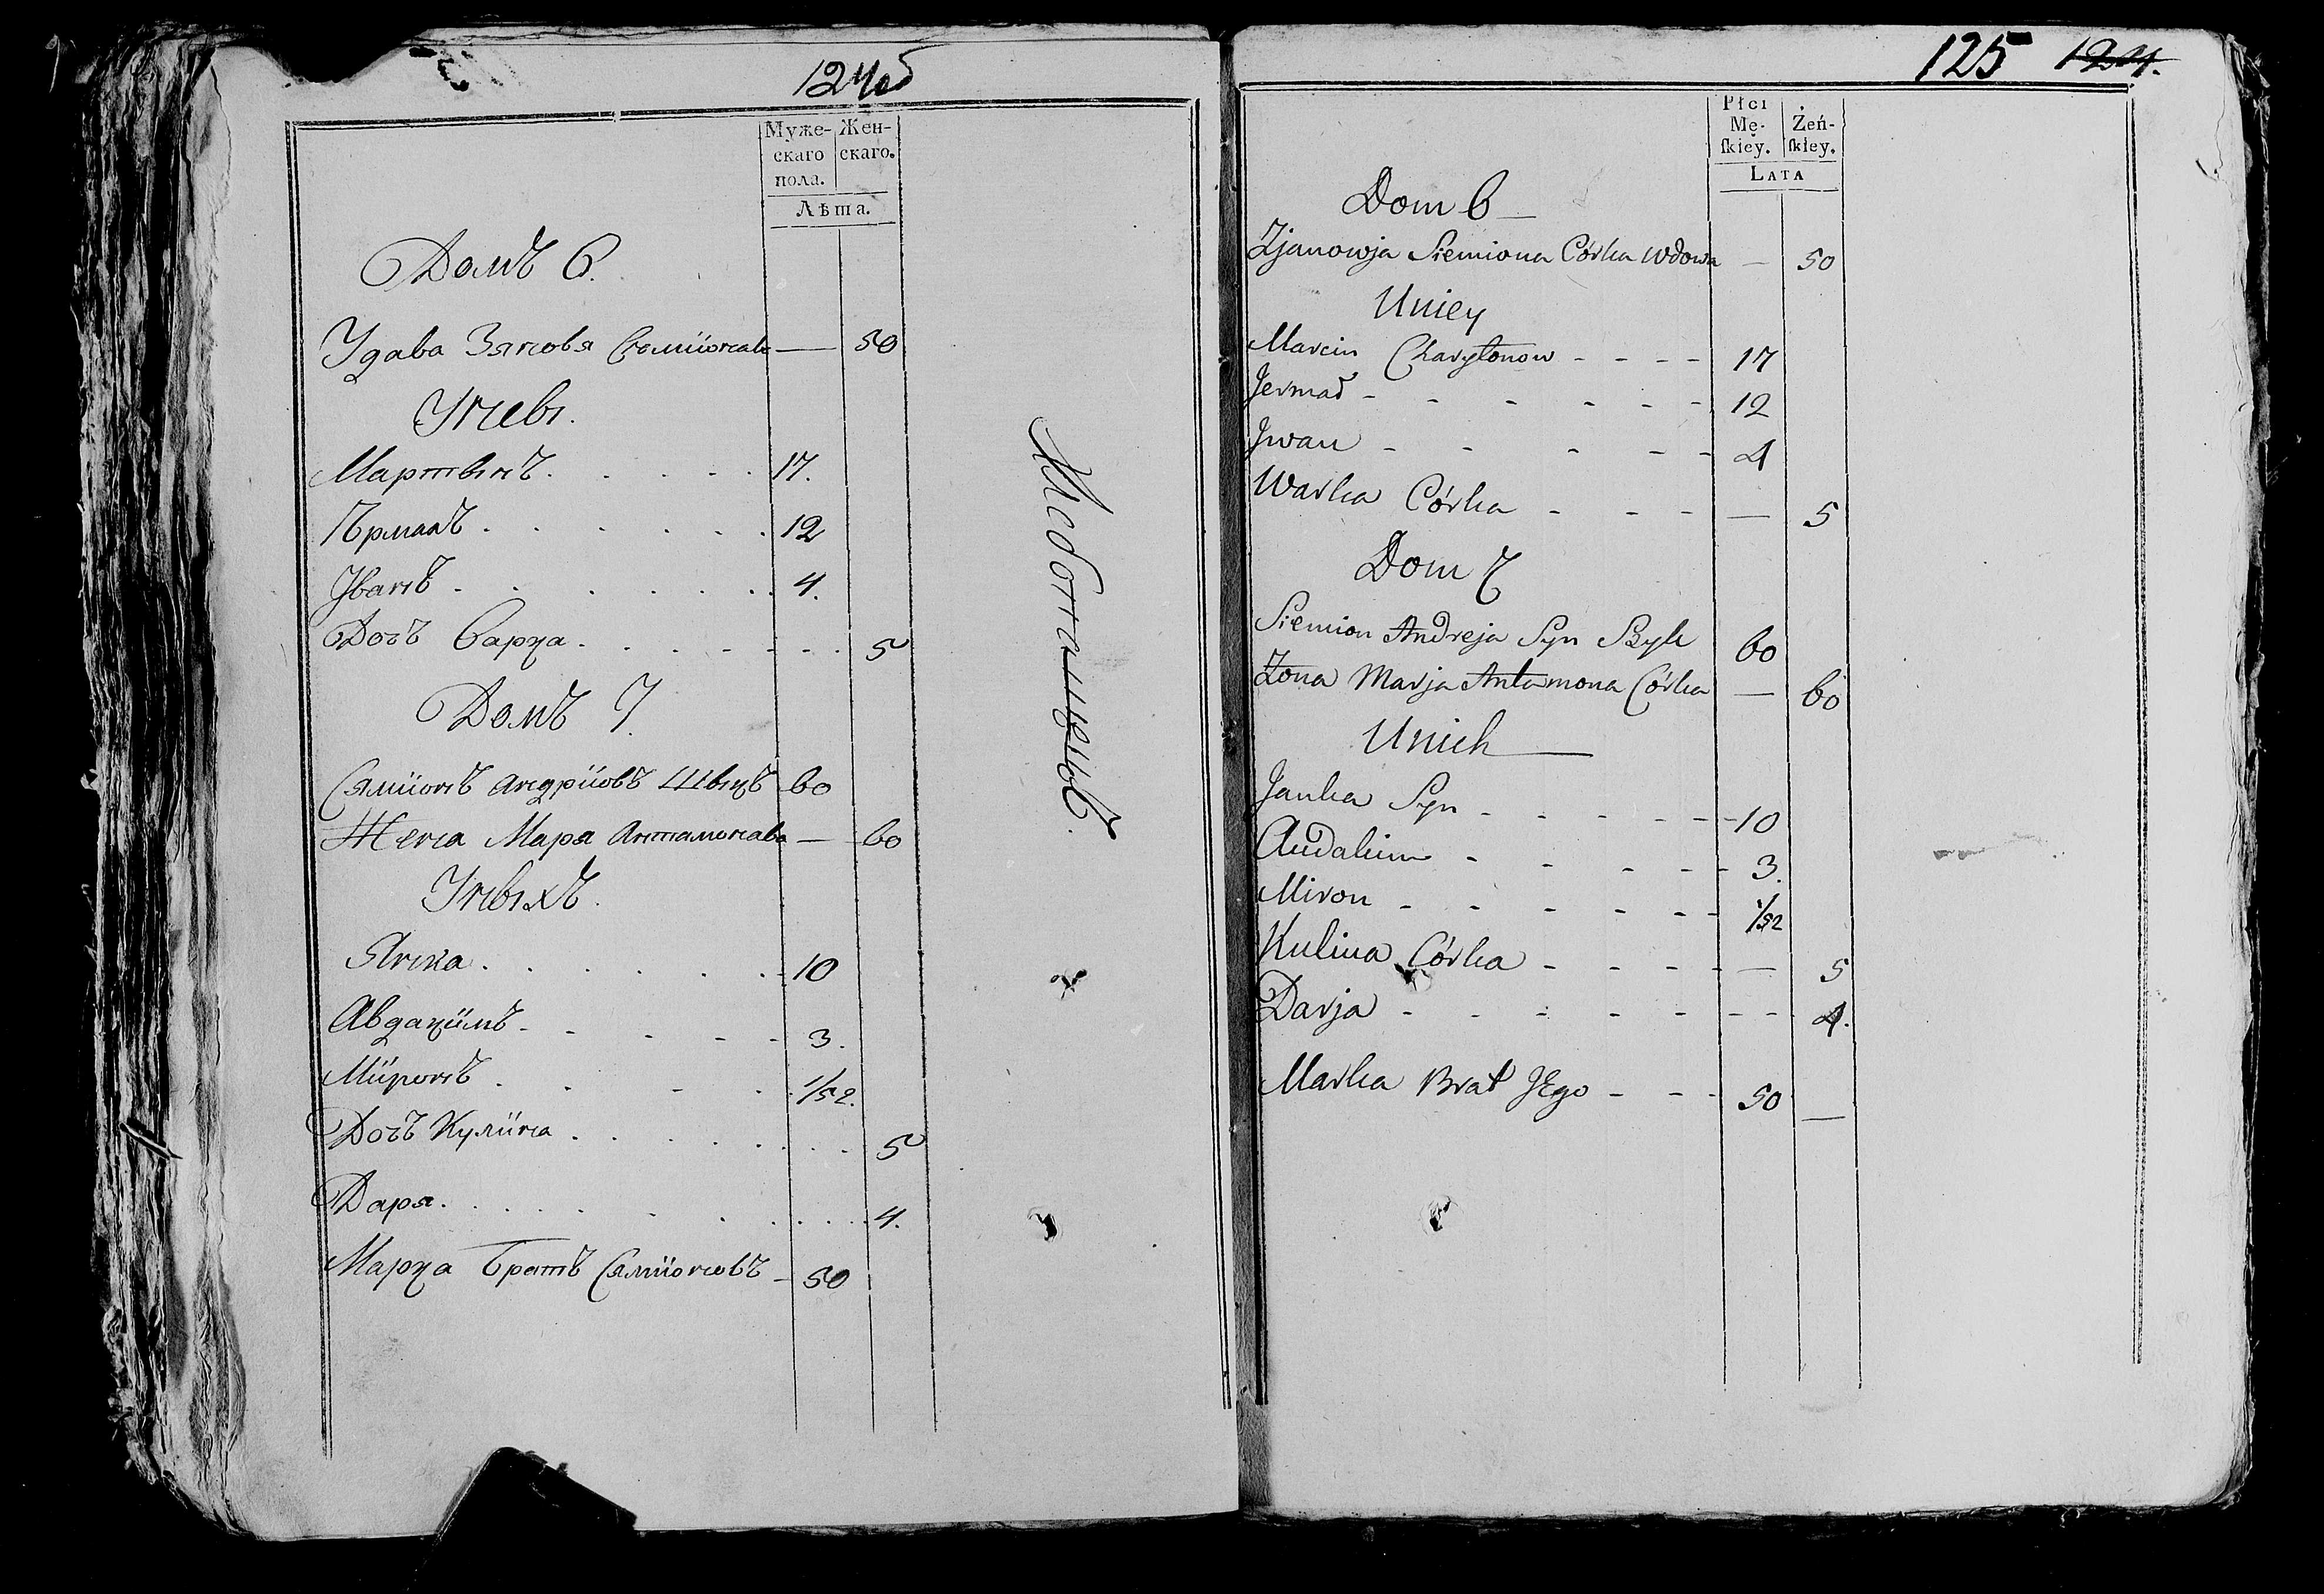 124об
Муже- Жен-
скаго скаго.
пола.
Лѣта.
Домъ 6.
Удава Зяновя Семіионава — 50
Унеы.
Мартынъ. 17.
Ърмакъ. 12
Иванъ. 4.
Дочъ Варка. 5
Домъ 7.
Сямиіонъ Андріиовъ 60
Жена Маря Антамонава — 60
Уныхъ.
Янка. 10
Авдакиімъ. 3.
Миіронъ. 1/52.
Дочъ Кулиіна. 5
Даря. 4.
Марка Братъ Сямиіоновъ 50
125 124.
Płci
Mę- Żeń-
ſkiey. ſkiey.
LATA
Dom 6
Zjanowja Siemiona Córka wdowa — 50
Uniey
Marcin Charytonow 17
Jermak 12
Jwan 4
Warka Córka — 5
Dom 7
Siemion Andreja Syn 60
Zona Marja Antamona Córka — 60
Unich
Janka Syn 10
Audakim 3.
Miron 1/52
Kulina Córka — 5
Darja 4.
Marka Brat JEgo 50 —